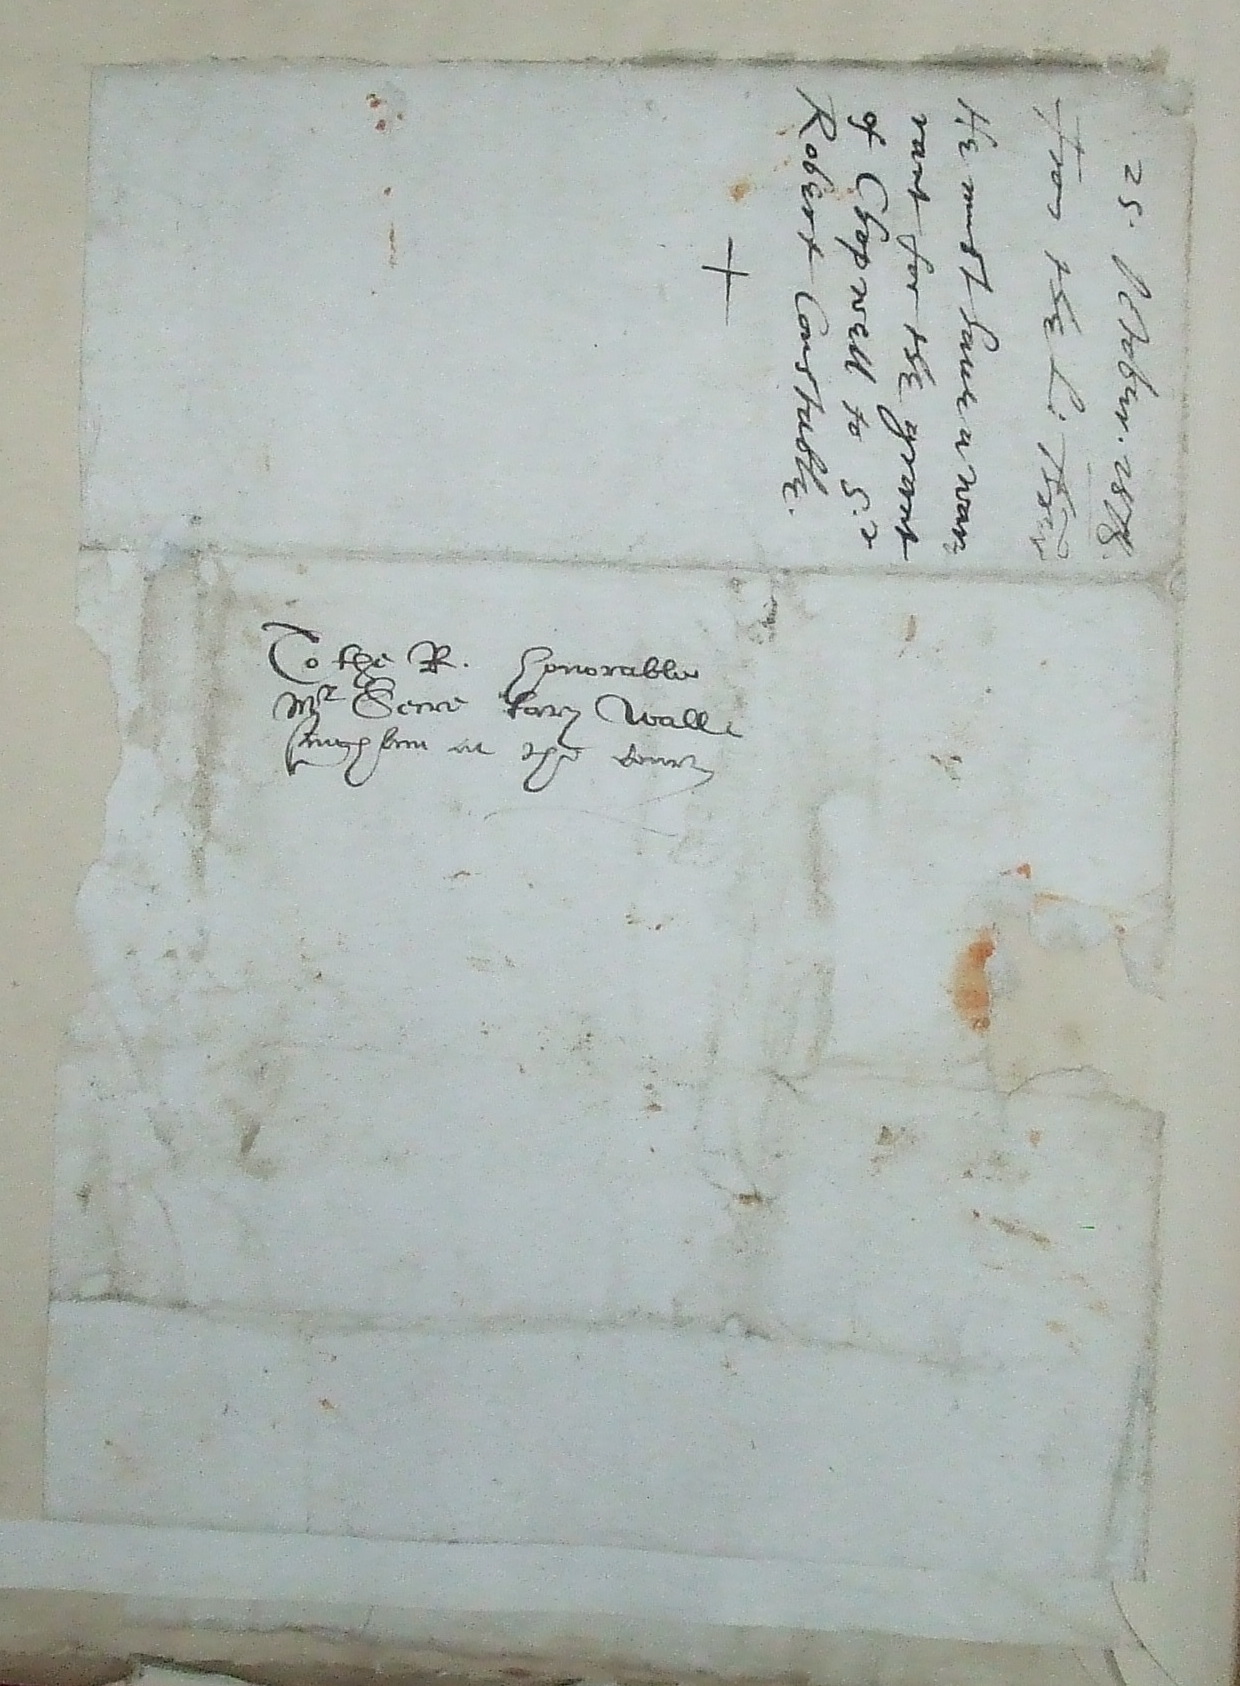 25. October. 1578.
From the L: Thrēr
He must haue a war=
rant for the grant
of Chopwell to Sr
Robert Constable.
To the R. honorable
Mr Secre tary Walls
singham at the Court